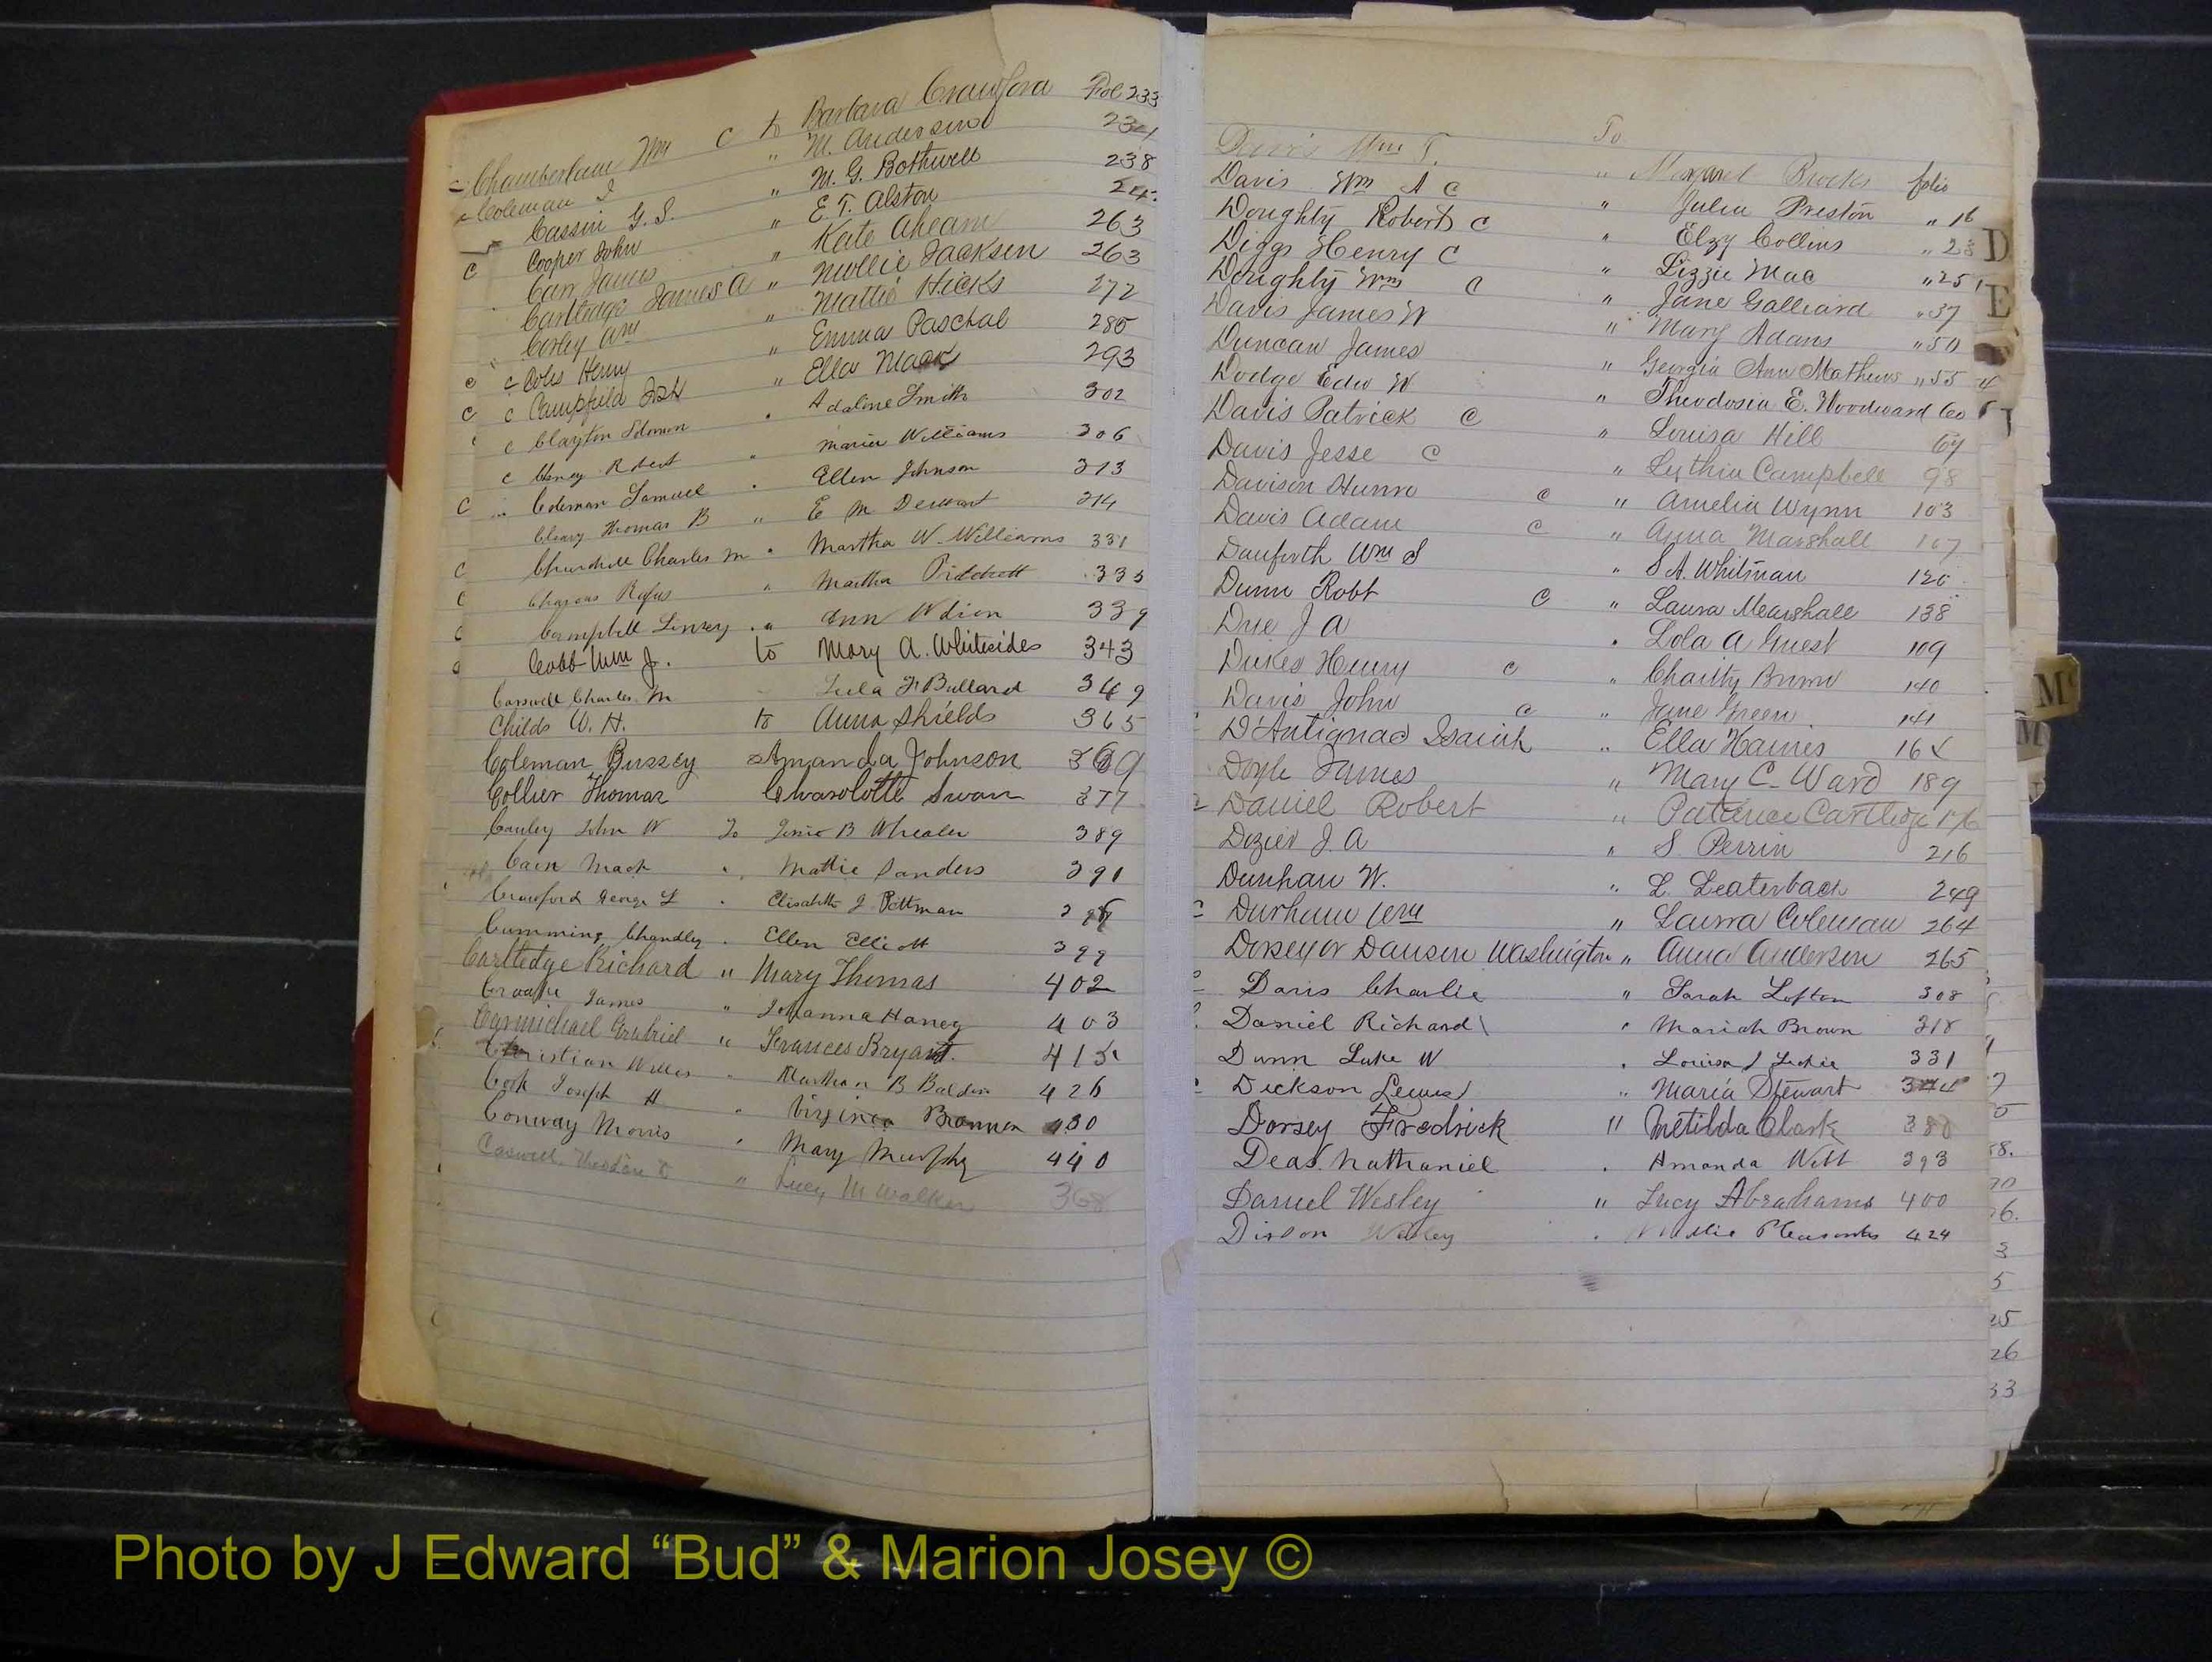 Chamberlain Wm C to Barbara Crawford Fol 233
Coleman I " M. Anderson 234
Cassin G. S. " M. G. Bothwell 238
Cooper John " E. T. Alston
C Carr James " Kate Ahearn 263
Cartledge James A " Mollie Jackson 263
Corley Wm " Mattie Hicks 272
c c Coles Henry " Emma Paschal 285
c c Campfield " Ella Mack 293
c Clayton Solomon " Adaline Smith 302
c Robert " Maria Williams 306
C Coleman Samuel " Ellen Johnson 313
Thomas B " E M 314
C Churchill Charles M " Martha W. Williams 331
Rufus " Martha Pritchett 333
Campbell Linsey " Ann 339
Cobb Wm J. to Mary A. Whitesides 343
Carswell Charles M Lula F Bullard 349
Childs W. H. to Anna Shields 365
Coleman Bussey Amanda Johnson 369
Collier Thomas Charolotte Swan 377
Cauley John W To B Whealer 389
Cain Mack " Mattie Sanders 391
Crawford George L " Elisabeth J Pittman
Cumming Chandley " Ellen Elliott 399
Cartledge Richard " Mary Thomas 402
James " Johanna Haney 403
Carmichael Gabriel " Frances Bryant. 415
Christian Willis " Marthan B 426
Cook Joseph H " Virginia Brannen 430
Conway Morris " Mary Murphy 440
Caswell " Lucy M Walker 368
Davis Wm T. To
Davis Wm A C " Margaret Brooks folio
Doughty Robert C " Julia Preston " 16
Diggs Henry C " Elzy Collins " 23
D
Doughty Wm C " Lizzie Mac " 25
Davis James W " Jane Galliard " 37
E
Duncan James " Mary Adams " 50
Dodge Edw W " Georgia Ann Mathews " 55
Davis Patrick C " Theodosia E. Woodward 60
Davis Jesse C " Louisa Hill 67
Davison " Campbell 98
Davis Adam c " Amelia Wynn 103
c " Anna Marshall 107
Danforth Wm S " S A. Whitman 126
Dunn Robt C " Laura Mearshall 138
J A " Lola A Guest 109
Dukes Henry c " Charity Brown 140
Davis John c " Jane Green 141
D'Antignac Isaiah " Ella Haines
Doyle James " Mary C. Ward 189
Daniel Robert " Patience Cartledge
Dozier J. A " S. Perrin 216
Dunham W. " L. Leaterbach 249
Durham Wm " Laura Coleman 264
Dorsey or Dawson Washington " Anna Anderson 265
Davis Charlie " Sarah Lofton 308
Daniel Richard " Mariah Brown 318
Dunn Luke W " Louisa J 331
Dickson Lewis " Maria Stewart
Dorsey Fredrick " Metilda Clark 380
Deas. Nathaniel " Amanda 393
Daniel Wesley " Lucy Abrahams 400
Wesley " 424
M
M
58.
26.
3
5
25
26
33
Photo by J Edward “Bud” & Marion Josey ©